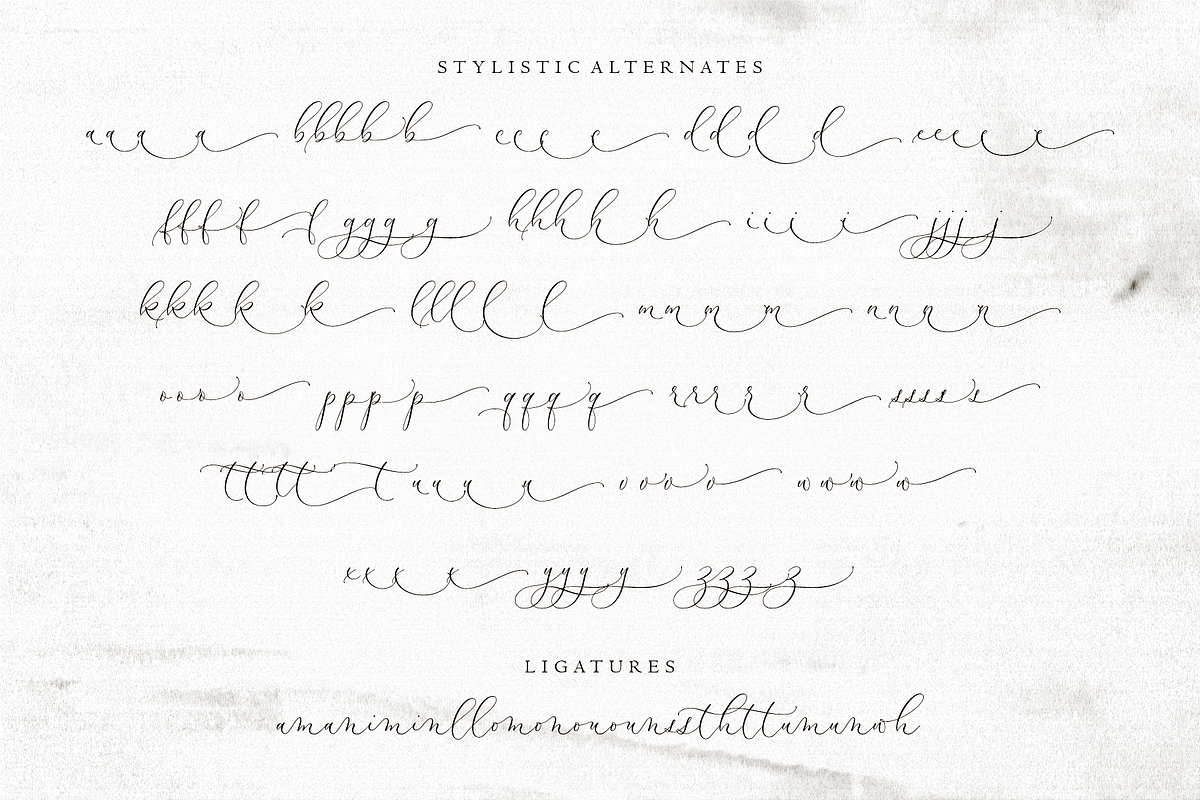 STYLISTIC ALTERNATES
a a a a b b b b b c c c c d d d d e e e e e
f f f f f g g g g h h h h h i i i i j j j j
k k k k k l l l l l m m m m n n n n
o o o o p p p p q q q q r r r r r s s s s s
t t t t t u u u u v v v v w w w w
x x x x y y y y z z z z
LIGATURES
amaniminllomonouounssthttumunwh